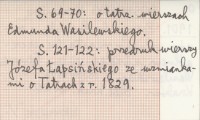 S. 69-70: o tatrz. wierszach
Edmunda Wasilewskiego.
S. 121-122: przedruk wierszy
Józefa Łapsińskiego ze wzmianka-
mi o Tatrach z r. 1829.